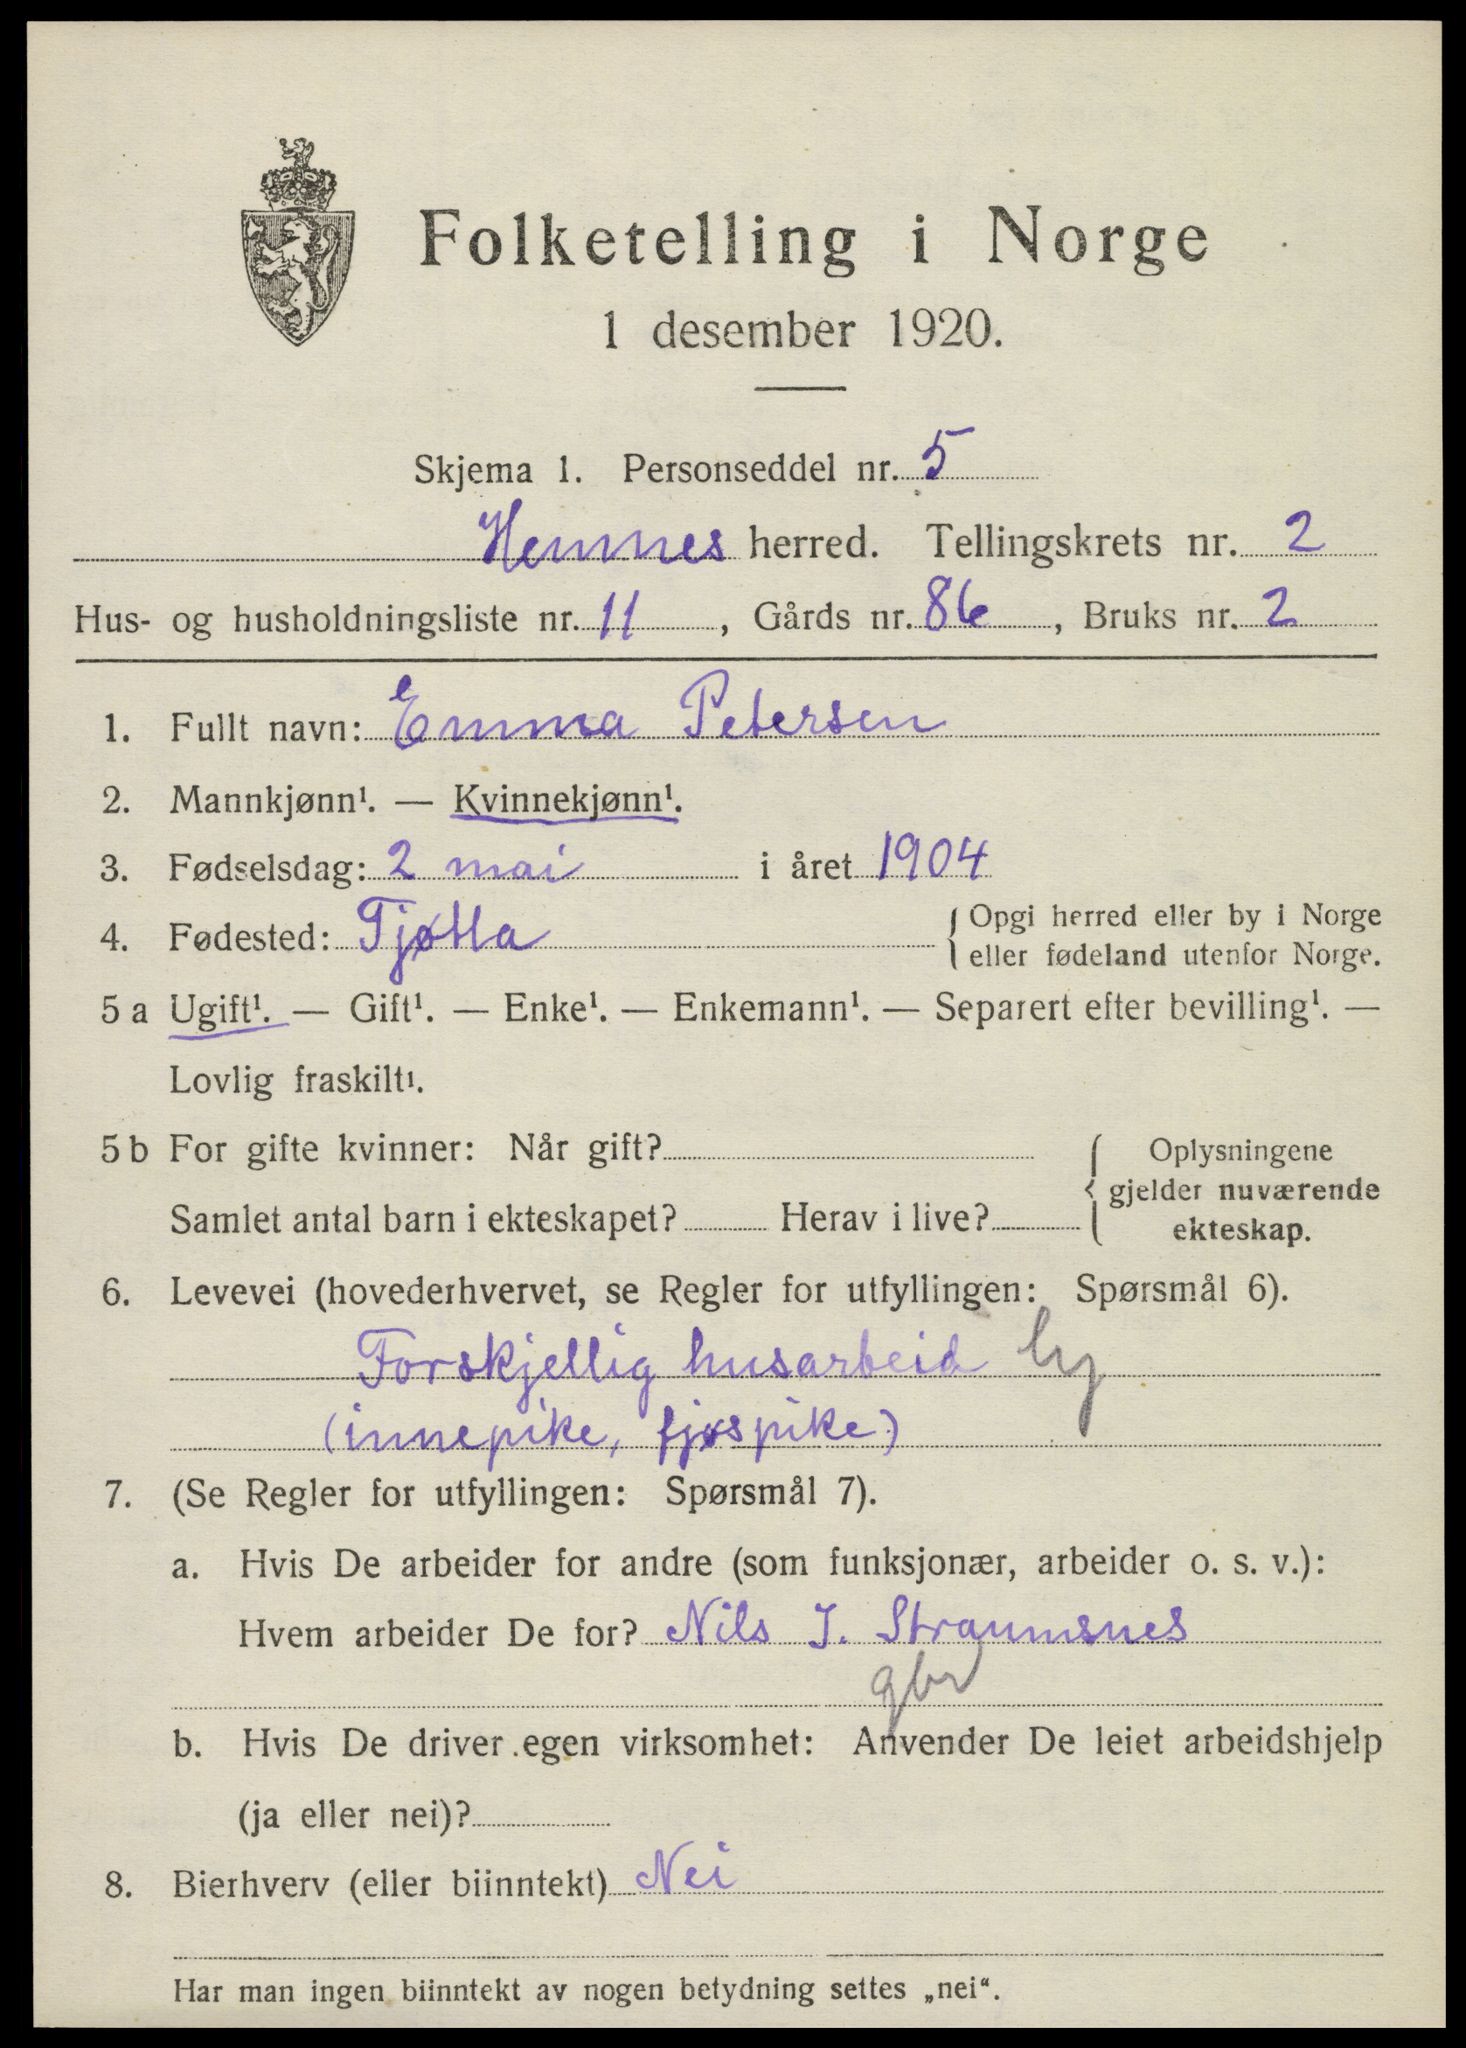 Folketelling i Norge
1 desember 1920.
Skjema 1. Personseddel nr. 5
Hemnes herred. Tellingskrets nr. 2
Hus- og husholdningsliste nr. 11, Gårds nr. 86, Bruks nr. 2
1. Fullt navn: Emma Petersen
2. Mannkjønn¹. — Kvinnekjønn¹.
3. Fødselsdag: 2 mai i året 1904
4. Fødested: Tjøtta { Opgi herred eller by i Norge
eller fødeland utenfor Norge.
5 a Ugift¹. — Gift¹. — Enke¹. — Enkemann¹. — Separert efter bevilling¹. —
Lovlig fraskilt¹.
5 b For gifte kvinner: Når gift?
Samlet antal barn i ekteskapet? Herav i live?
Oplysningene
gjelder nuværende
ekteskap.
6. Levevei (hovederhvervet, se Regler for utfyllingen: Spørsmål 6).
Forskjellig husarbeid
(innepike, fjøspike)
7. (Se Regler for utfyllingen: Spørsmål 7).
a. Hvis De arbeider for andre (som funksjonær, arbeider o. s. v.):
Hvem arbeider De for? Nils J. Straumsnes
gbr
b. Hvis De driver egen virksomhet: Anvender De leiet arbeidshjelp
(ja eller nei)?
8. Bierhverv (eller biinntekt) Nei
Har man ingen biinntekt av nogen betydning settes „nei“.